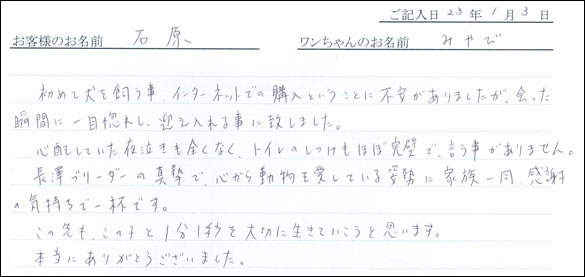 ご記入日 23 年 1 月 3 日
お客様のお名前 石原 ワンちゃんのお名前 みやび
初めて犬を飼う事、インターネットでの購入ということに不安がありましたが、会った
瞬間に一目惚れし、迎え入れる事に致しました。
心配していた夜泣きも全くなく、トイレのしつけもほぼ完璧で、言う事がありません。
長澤ブリーダーの真摯で、心から動物を愛している姿勢に家族一同、感謝
の気持ちで一杯です。
この先も、この子と1分1秒を大切に生きていこうと思います。
本当にありがとうございました。